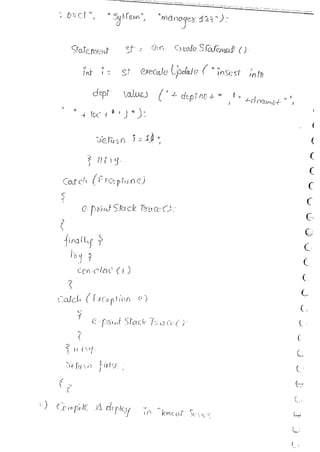 : orcl", "System", "manager123"):
Statement st = con. Create Statement ();
int i = st executeUpdate ("insert into
dept values (" + deptno + " , '" +dname+ "',
" + loc + " ' ) " ):
return i = 1;
} // try.
Catch (Exception e)
{
e.print Stack Trace ():
{
finally {
try {
con.close ( )
}
Catch (Exception e)
{
e print Stack Trace ( )
}
} // try.
return false;
{ }
=) Compile & deploy in Tomcat Server